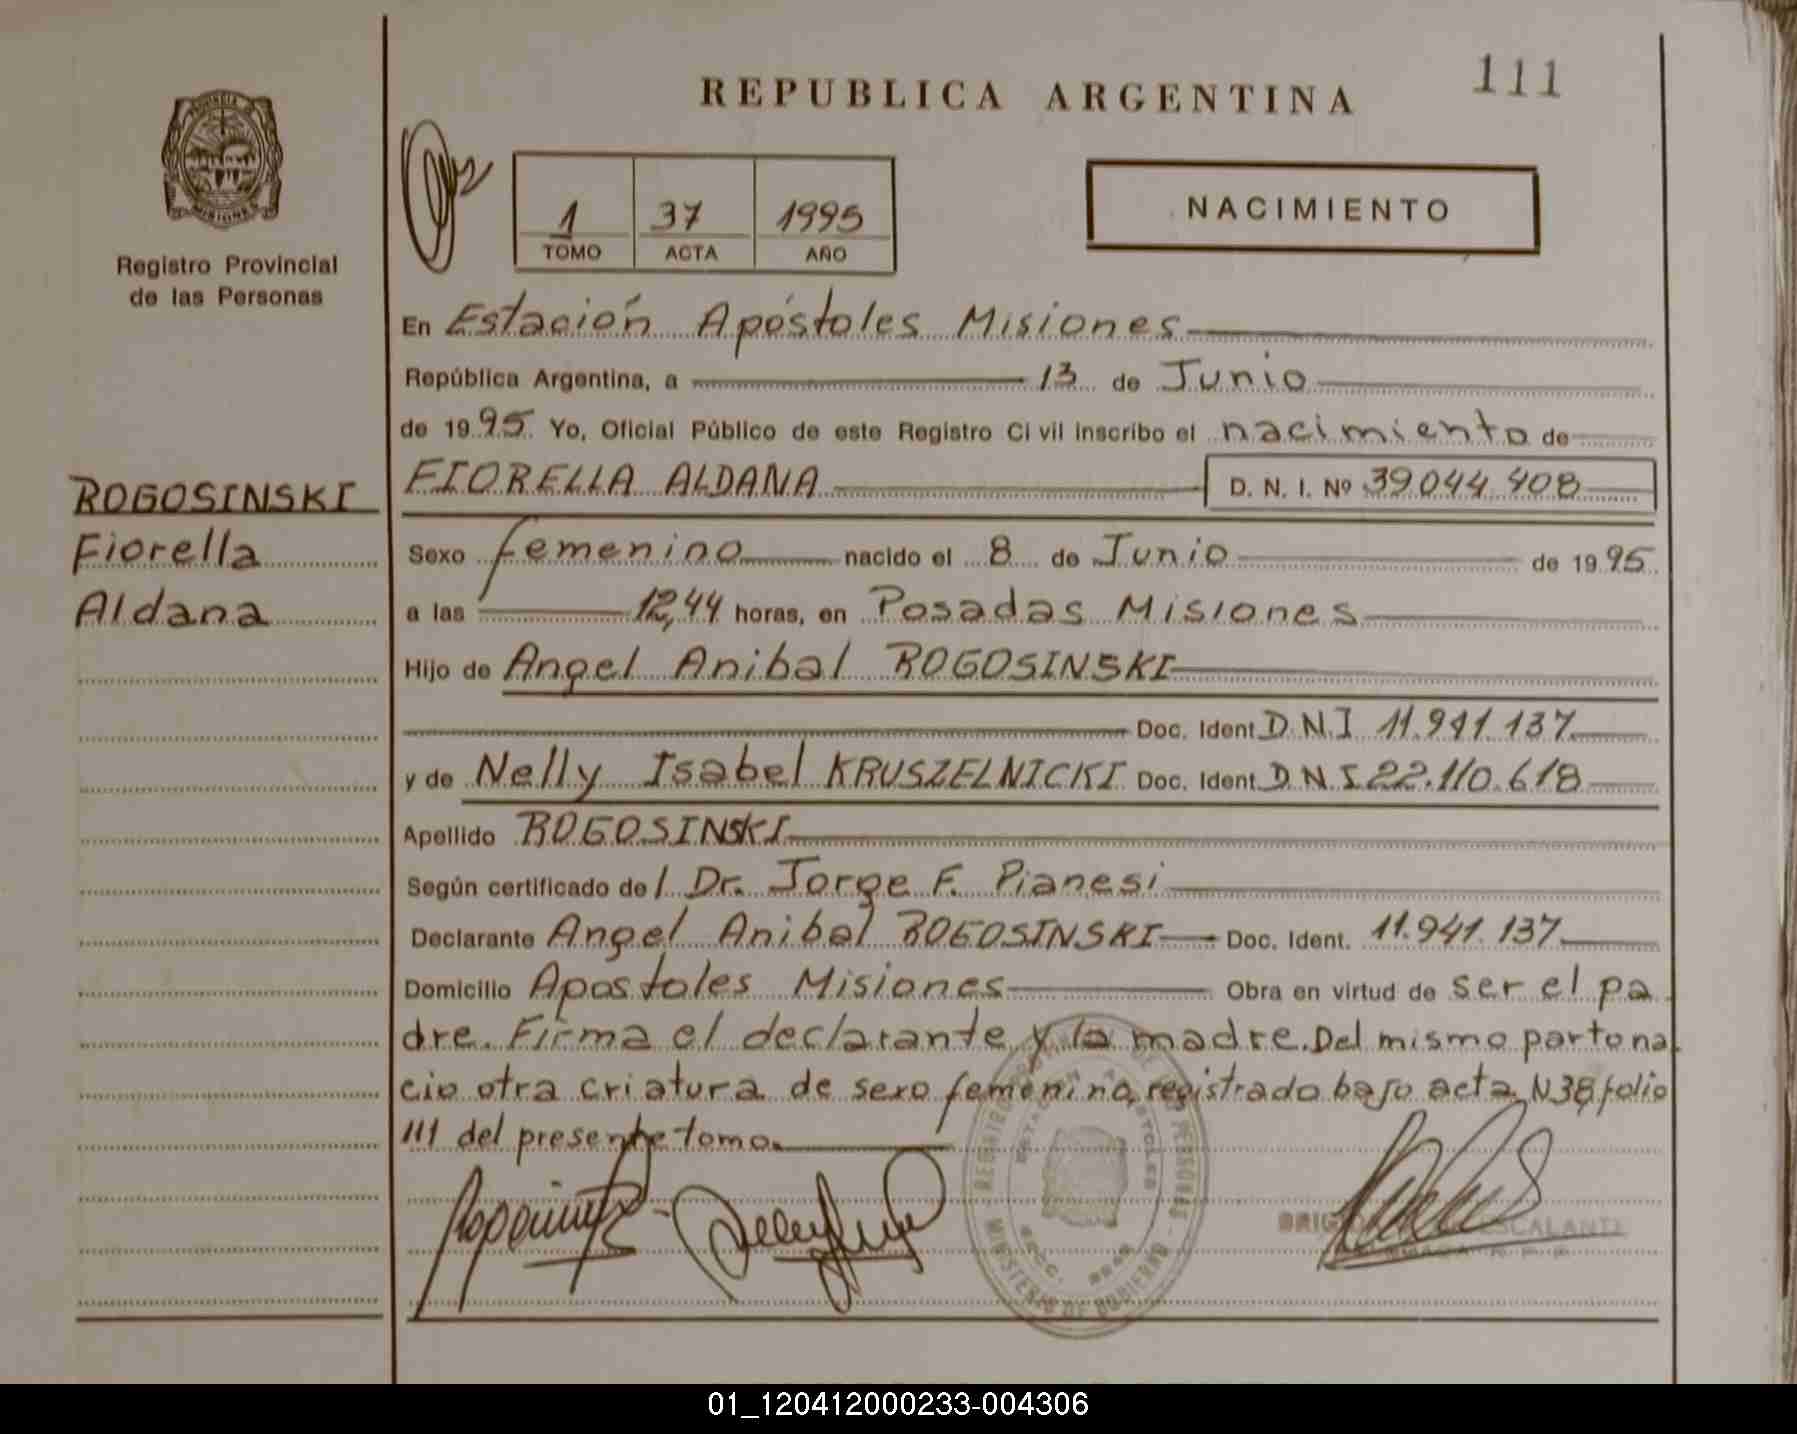 REPUBLICA ARGENTINA
111
PROVINCIA DE
MISIONES
Registro Provincial
de las Personas
1 37 1995
TOMO ACTA AÑO
NACIMIENTO
En Estación Apóstoles Misiones
República Argentina, a 13 de Junio
de 1995. Yo, Oficial Público de este Registro Civil inscribo el nacimiento de
ROGOSINSKI
Fiorella
Aldana
FIORELLA ALDANA D. N. I. Nº 39.044.408
Sexo femenino nacido el 8 de Junio de 1995
a las 12,44 horas, en Posadas Misiones
Hijo de Angel Anibal ROGOSINSKI
Doc. Ident. D.N.I 11.941.137
y de Nelly Isabel KRUSZELNICKI Doc. Ident. D.N.I. 22.110.618
Apellido ROGOSINSKI
Según certificado del Dr. Jorge F. Pianesi
Declarante Angel Anibal ROGOSINSKI Doc. Ident. 11.941.137
Domicilio Apostoles Misiones Obra en virtud de ser el pa
dre. Firma el declarante y la madre. Del mismo parto na
cio otra criatura de sexo femenino, registrado bajo acta N38, folio
111 del presente tomo.
MINISTERIO DE GOBIERNO
ESCALANTE
01_120412000233-004306